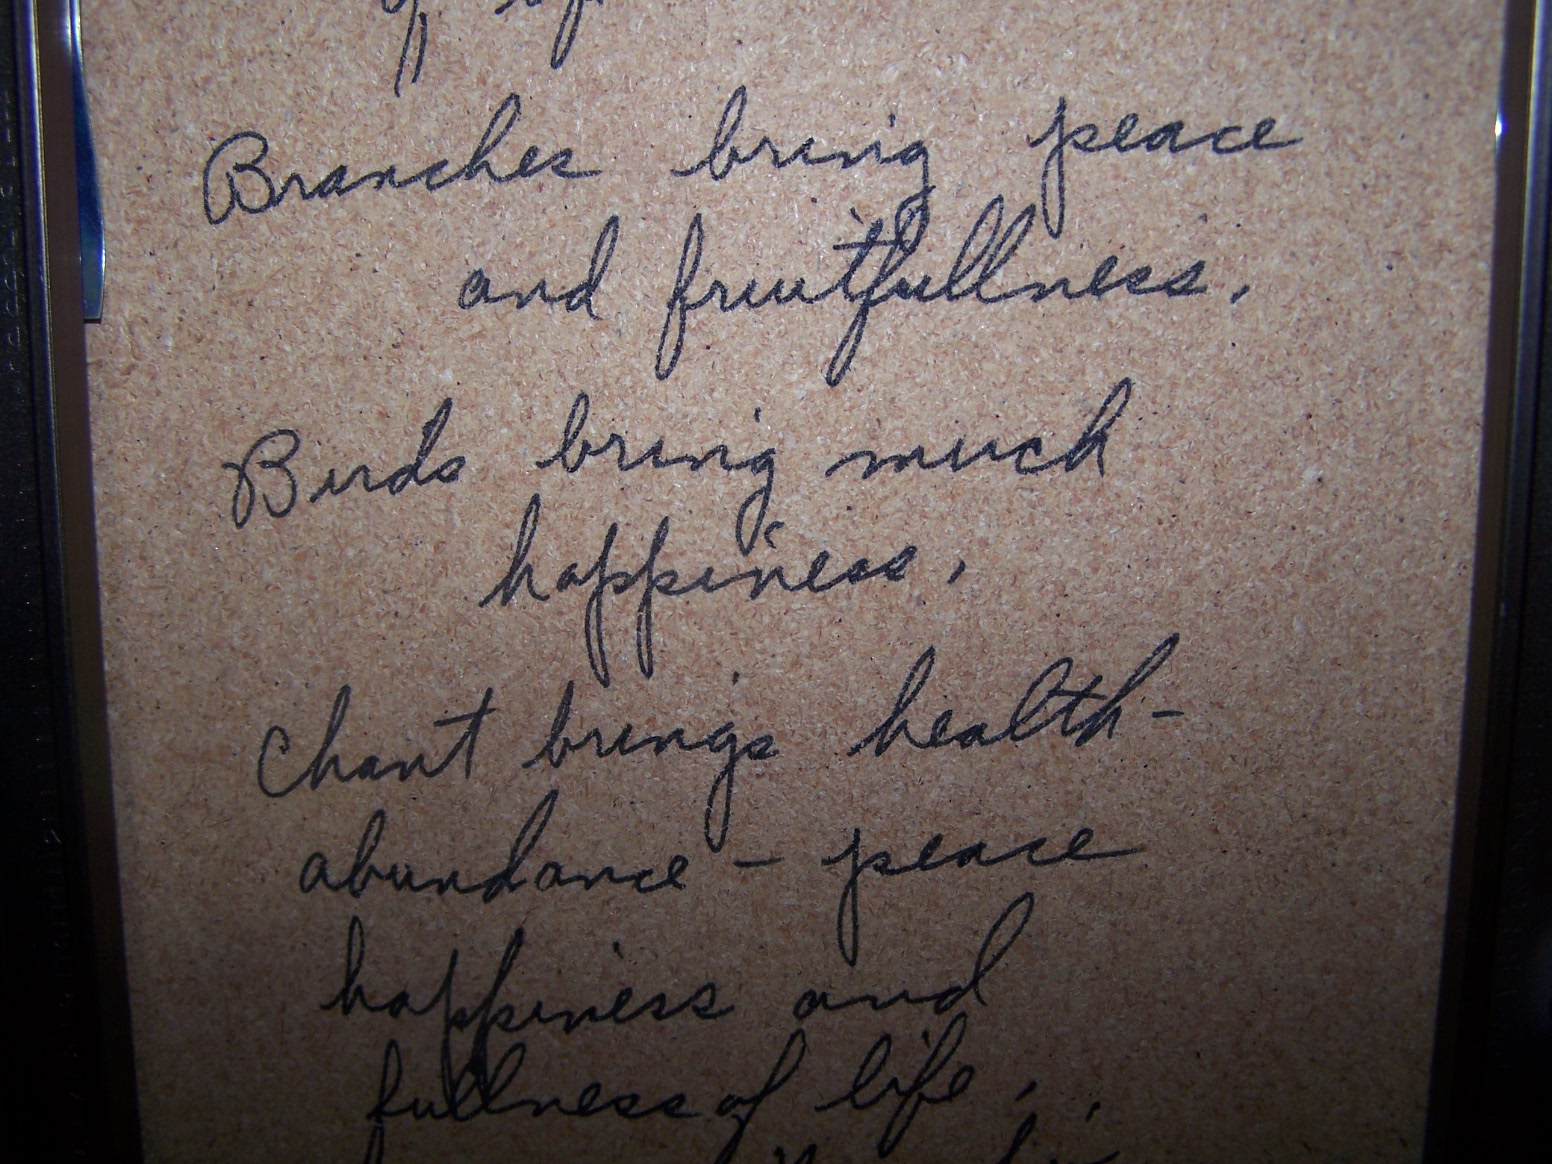 Branches bring peace
and fruitfullness.
Birds bring much
happiness.
Chant brings health-
abundance - peace
happiness and
fullness of life.